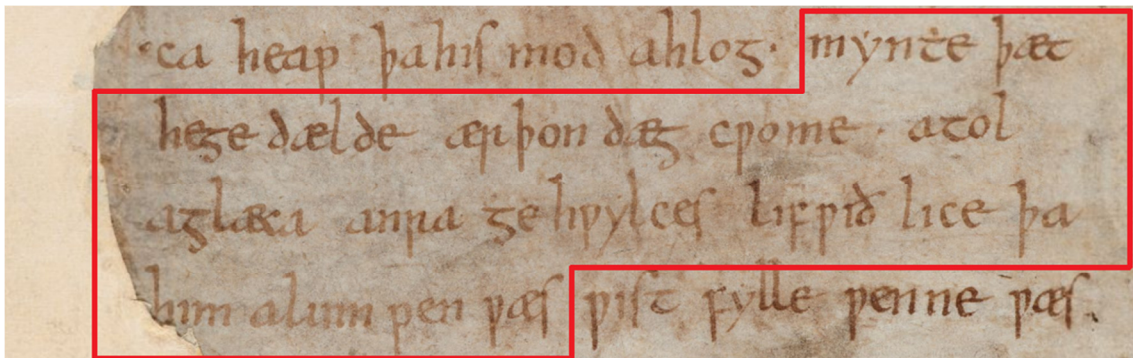 ca heap þahis mod ahlog· mynte þæt
hege dælde ærþon dæg cƿome · atol
aglæca anra ge hƿylces lifƿið lice þa
him alumpen ƿæs ƿist fylle ƿenne ƿæs